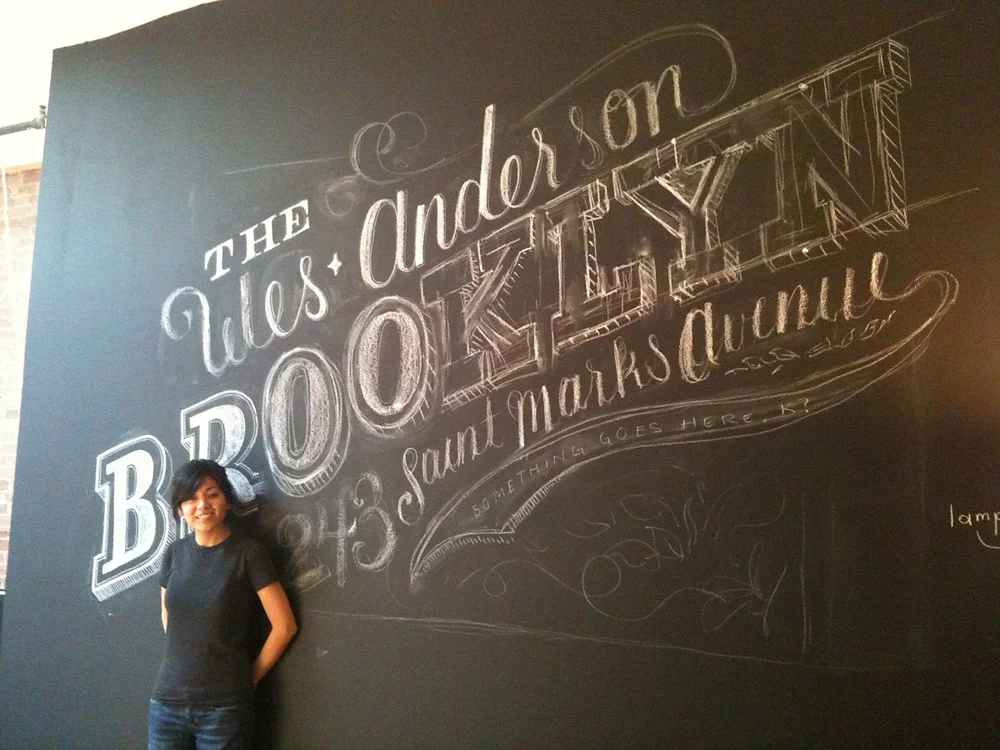 THE
Wes Anderson
BROOKLYN
243 Saint Marks Avenue
SOMETHING GOES HERE, K?
lamp